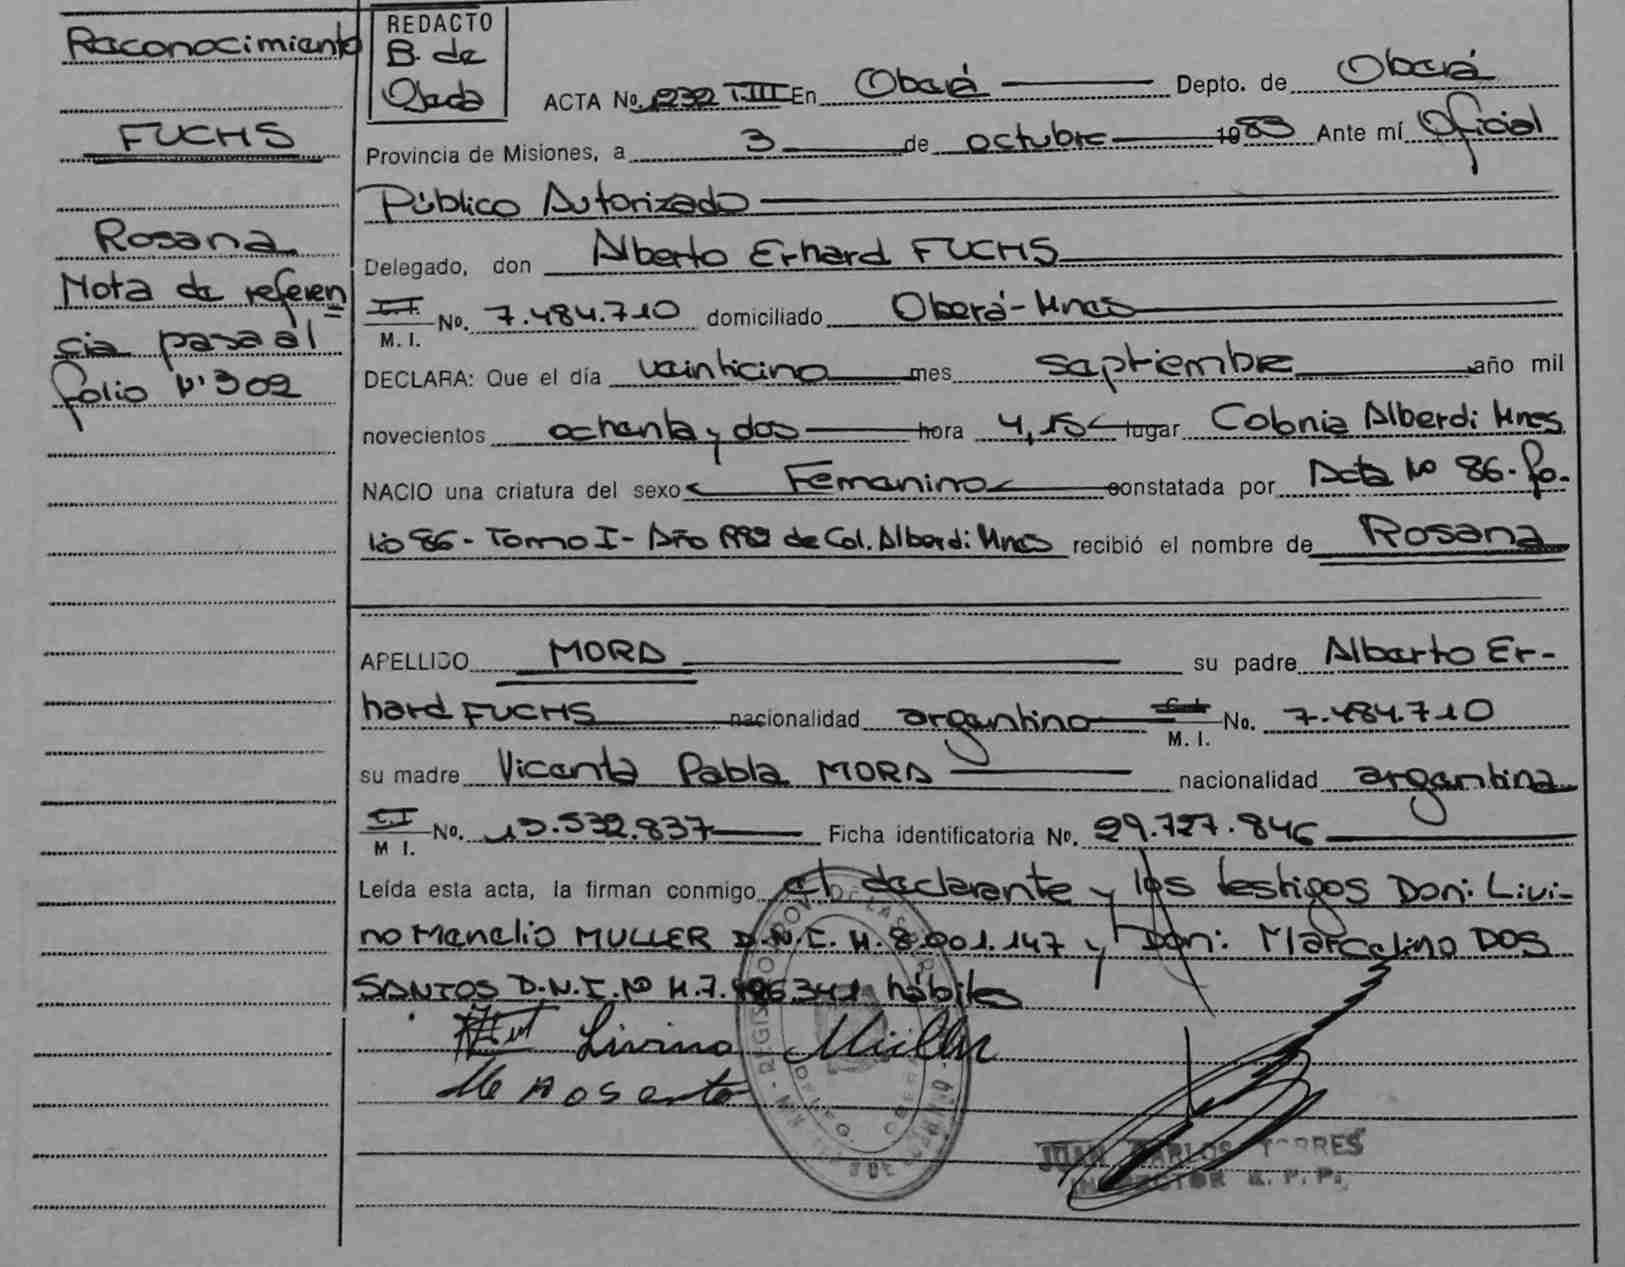 Reconocimiento
FUCHS
Rosana
Nota de referen
cia pasa al
folio Nº 302
REDACTO
B. de
Ojeda
ACTA No. 1232 T.III En Oberá Depto. de Oberá
Provincia de Misiones, a 3 de octubre 1983 Ante mí Oficial
Público Autorizado
Delegado, don Alberto Erhard FUCHS
M. I. No. 7.484.710 domiciliado Oberá-Mnes
DECLARA: Que el día veinticinco mes septiembre año mil
novecientos ochenta y dos hora 4,15 lugar Colonia Alberdi Mnes
NACIO una criatura del sexo Femenino constatada por Acta Nº 86-fo-
lio 86-Tomo I-Año 1982 de Col. Alberdi Mnes recibió el nombre de Rosana
APELLIDO MORA su padre Alberto Er-
hard FUCHS nacionalidad argentino M. I. No. 7.484.710
su madre Vicenta Pabla MORA nacionalidad argentina
M I. No. 13.532.837 Ficha identificatoria No. 29.727.846
Leída esta acta, la firman conmigo el declarante y los testigos Don: Livi-
no Menelio MULLER D.N.I. M.8.001.147 y Don: Marcelino DOS
SANTOS D.N.I.Nº M.7. hábiles
Livino Müller
JUAN CARLOS TORRES
INSPECTOR R. P. P.